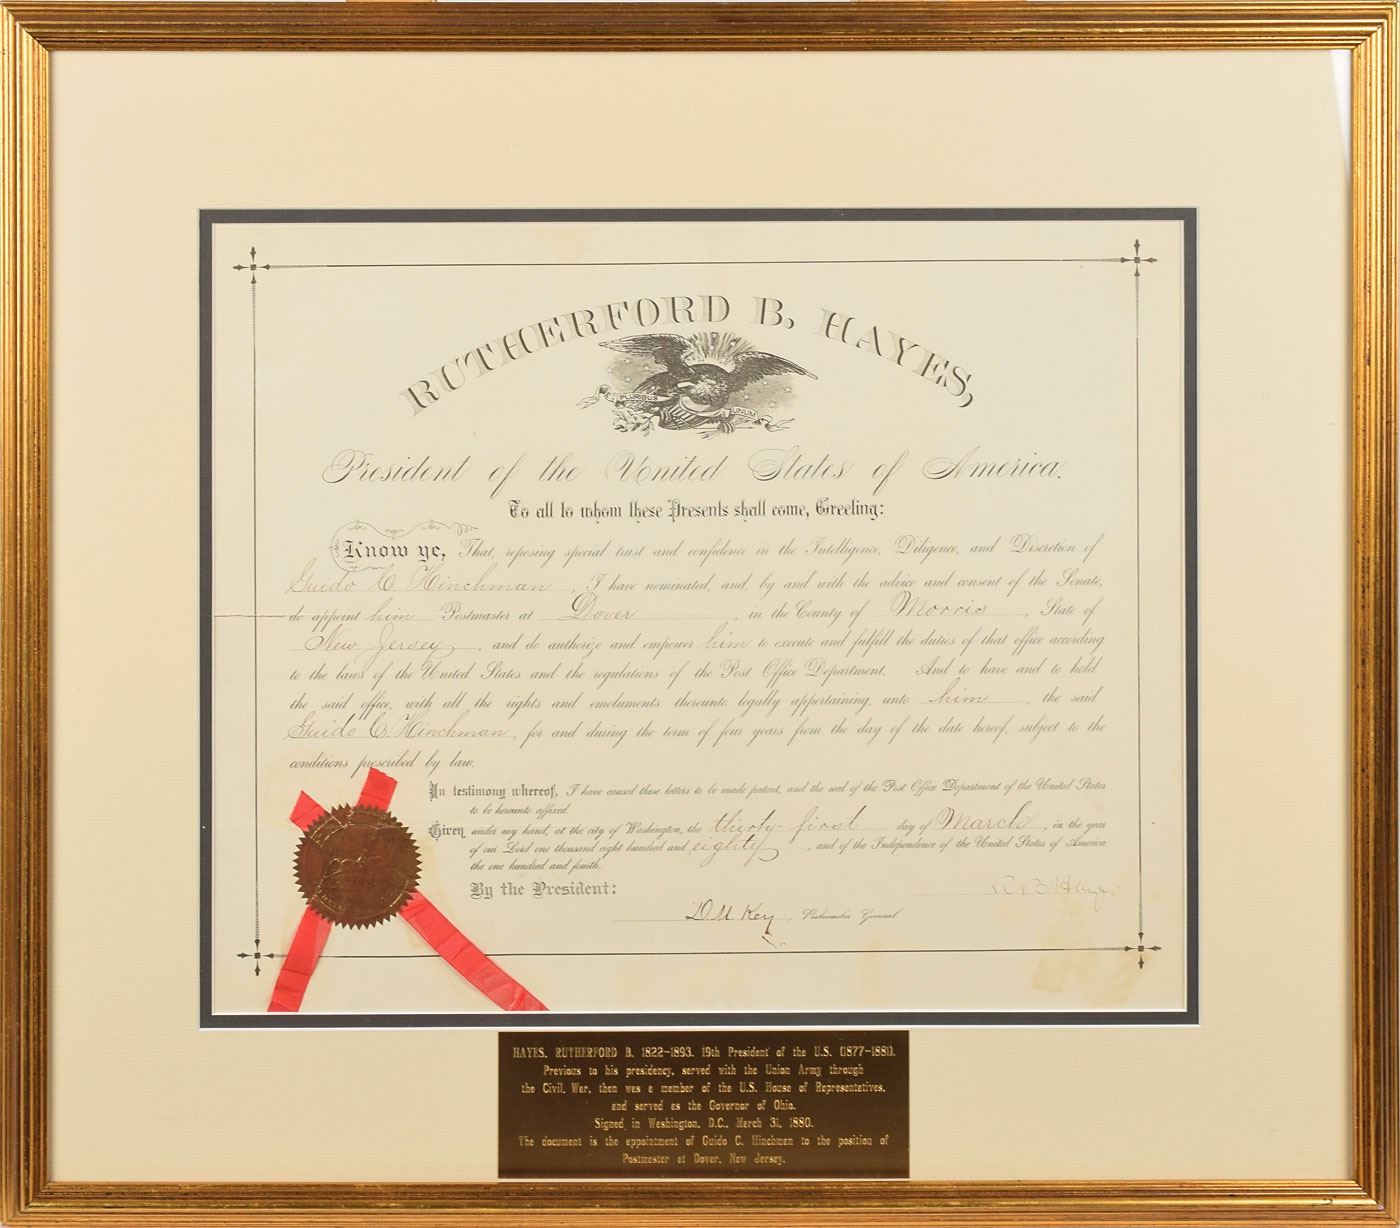 RUTHERFORD B. HAYES,
E PLURIBUS UNUM
President of the United States of America.
To all to whom these Presents shall come, Greeting:
Know ye, That, reposing special trust and confidence in the Intelligence, Diligence, and Discretion of
Guido C. Hinchman, I have nominated, and, by and with the advice and consent of the Senate,
do appoint him Postmaster at Dover, in the County of Morris, State of
New Jersey, and do authorize and empower him to execute and fulfill the duties of that office according
to the laws of the United States and the regulations of the Post Office Department. And to have and to hold
the said office, with all the rights and emoluments thereunto legally appertaining, unto him, the said
Guido C. Hinchman, for and during the term of four years from the day of the date hereof, subject to the
conditions prescribed by law.
In testimony whereof, I have caused these letters to be made patent, and the seal of the Post Office Department of the United States
to be hereunto affixed.
Given under my hand, at the city of Washington, the thirty-first day of March, in the year
of our Lord one thousand eight hundred and eighty, and of the Independence of the United States of America
the one hundred and fourth.
By the President:
R B Hayes
D. M. Key, Postmaster General.
HAYES, RUTHERFORD B. 1822-1893. 19th President of the U.S. (1877-1881).
Previous to his presidency, served with the Union Army through
the Civil War, then was a member of the U.S. House of Representatives,
and served as the Governor of Ohio.
Signed in Washington, D.C., March 31, 1880.
The document is the appointment of Guido C. Hinchman to the position of
Postmaster at Dover, New Jersey.